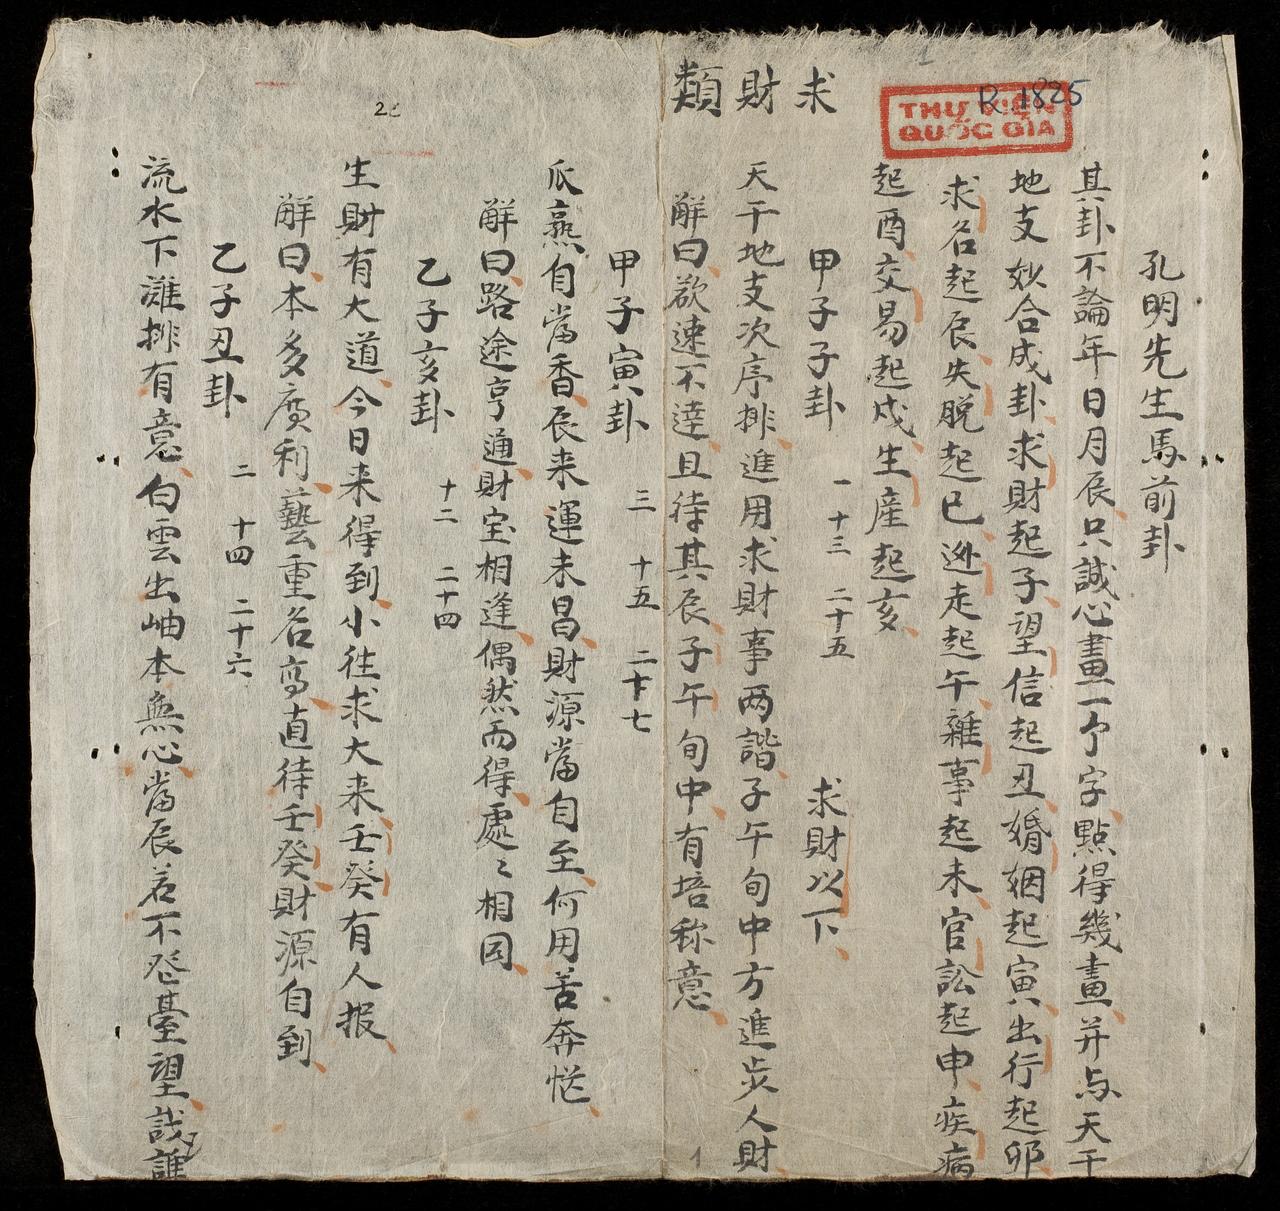 R.1825
THƯ VIỆN
QUỐC GIA
孔明先生馬前卦
其卦不論年日月辰只誠心畫一个字點得幾畫并与天干
地支妙合成卦求財起子望信起丑婚姻起寅出行起卯
求名起辰失脫起巳逃走起午雜事起未官訟起申疾病
起酉交易起戍生産起亥
求財類
甲子子卦 一 十三 二十五 求財以下
天干地支次序排進用求財事两諧子午旬中方進步人財
解曰欲速不達且待其辰子午旬中有培称意
甲子寅卦 三 十五 二十七
瓜熟自當香辰来運未昌財源當自至何用苦奔忙
解曰路途亨通財宝相逢偶然而得處〻相同
乙子亥卦 十二 二十四
生財有大道今日来得到小往求大来壬癸有人报
解曰本多廣利藝重名高直待壬癸財源自到
乙子丑卦 二 十四 二十六
流水下灘排有意白雲出岫本無心當辰若不登臺望誰
1